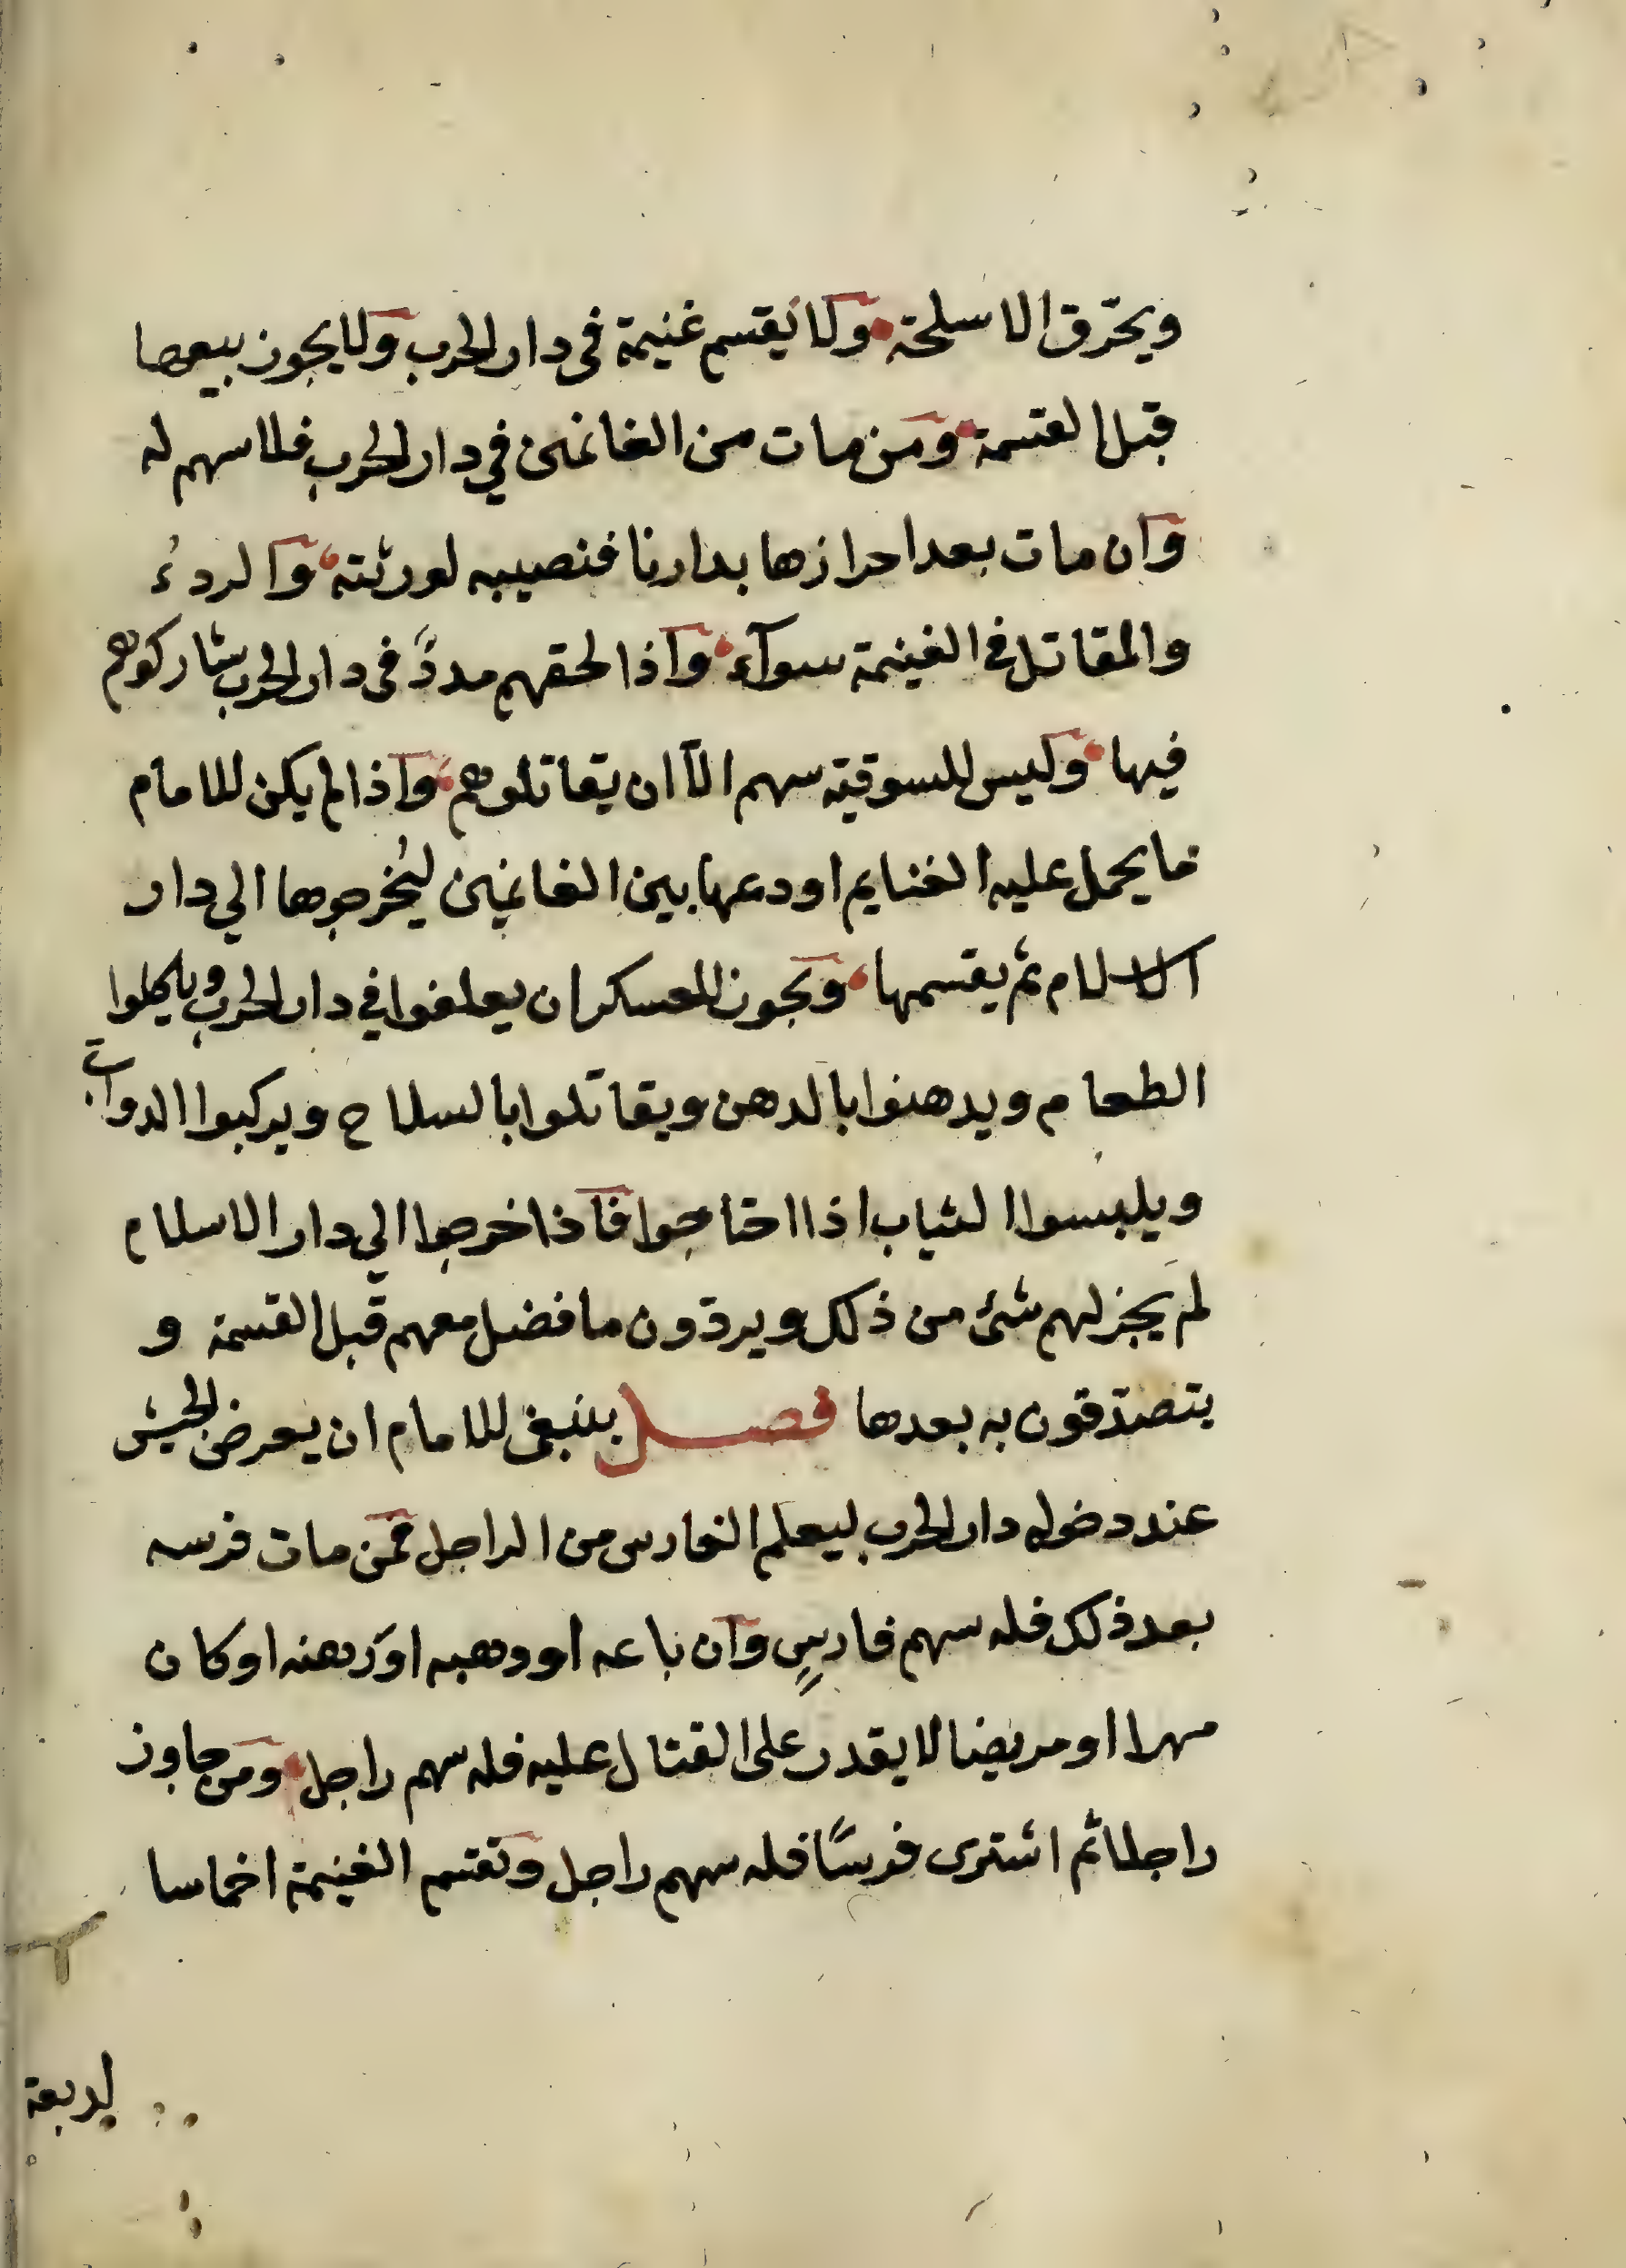 ويحرّق الاسلحة ولا يقسم غنيمة فى دار الحرب ولا يجوز بيعها
قبل القسمة ومن مات من الغانمين في دار الحرب فلا سهم له
وان مات بعد احرازها بدارنا فنصيبه لورثته والردءُ
والمقاتل في الغنيمة سوآء واذا لحقهم مددٌ فى دار الحرب شاركوهم
فيها وليس للسوقية سهم الّا ان يقاتلوهم واذا لم يكن للامام
ما يحمل عليه الغنايم اودعها بين الغانمين ليُخرجوها الي دار
الاسلام ثم يقسمها ويجوز للعسكر ان يعلفوا في دار الحرب وياكلوا
الطعام ويدهنوا بالدهن ويقاتلوا بالسلاح ويركبوا الدوابّ
ويلبسوا الثياب اذا احتاجوا فاذا خرجوا الي دار الاسلام
لم يجز لهم شئ من ذلك ويردّون ما فضل معهم قبل القسمة و
يتصدّقون به بعدها فصل ينبغى للامام ان يعرض الجيش
عند دخوله دار الحرب ليعلم الفارس من الراجل فمن مات فرسه
بعد ذلك فله سهم فارسٍ وان باعه او وهبه او رهنه او كان
مهرا او مريضا لا يقدر على القتال عليه فله سهم راجل ومن جاوز
راجلا ثم اشترى فرسًا فله سهم راجل وتقسم الغنيمة اخماسا
اربعة